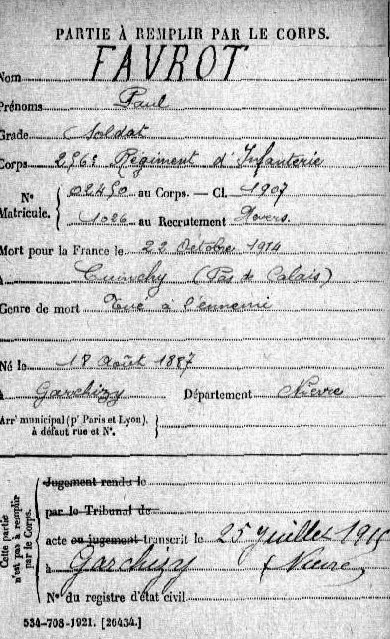 PARTIE À REMPLIR PAR LE CORPS.
Nom FAVROT
Prénoms Paul
Grade Soldat
Corps 256e Régiment d'Infanterie
N° Matricule. { 02450 au Corps. — Cl. 1907
1026 au Recrutement Nevers.
Mort pour la France le 22 Octobre 1914
à Cuinchy (Pas de Calais)
Genre de mort Tué à l'ennemi
Né le 18 Août 1887
à Garchizy Département Nièvre
Arrt municipal (pr Paris et Lyon), à défaut rue et N°. }
Cette partie n'est pas à remplir par le Corps.
Jugement rendu le
par le Tribunal de
acte ou jugement transcrit le 25 Juillet 1915
à Garchizy (Nièvre)
N° du registre d'état civil
534-708-1921. [26434.]